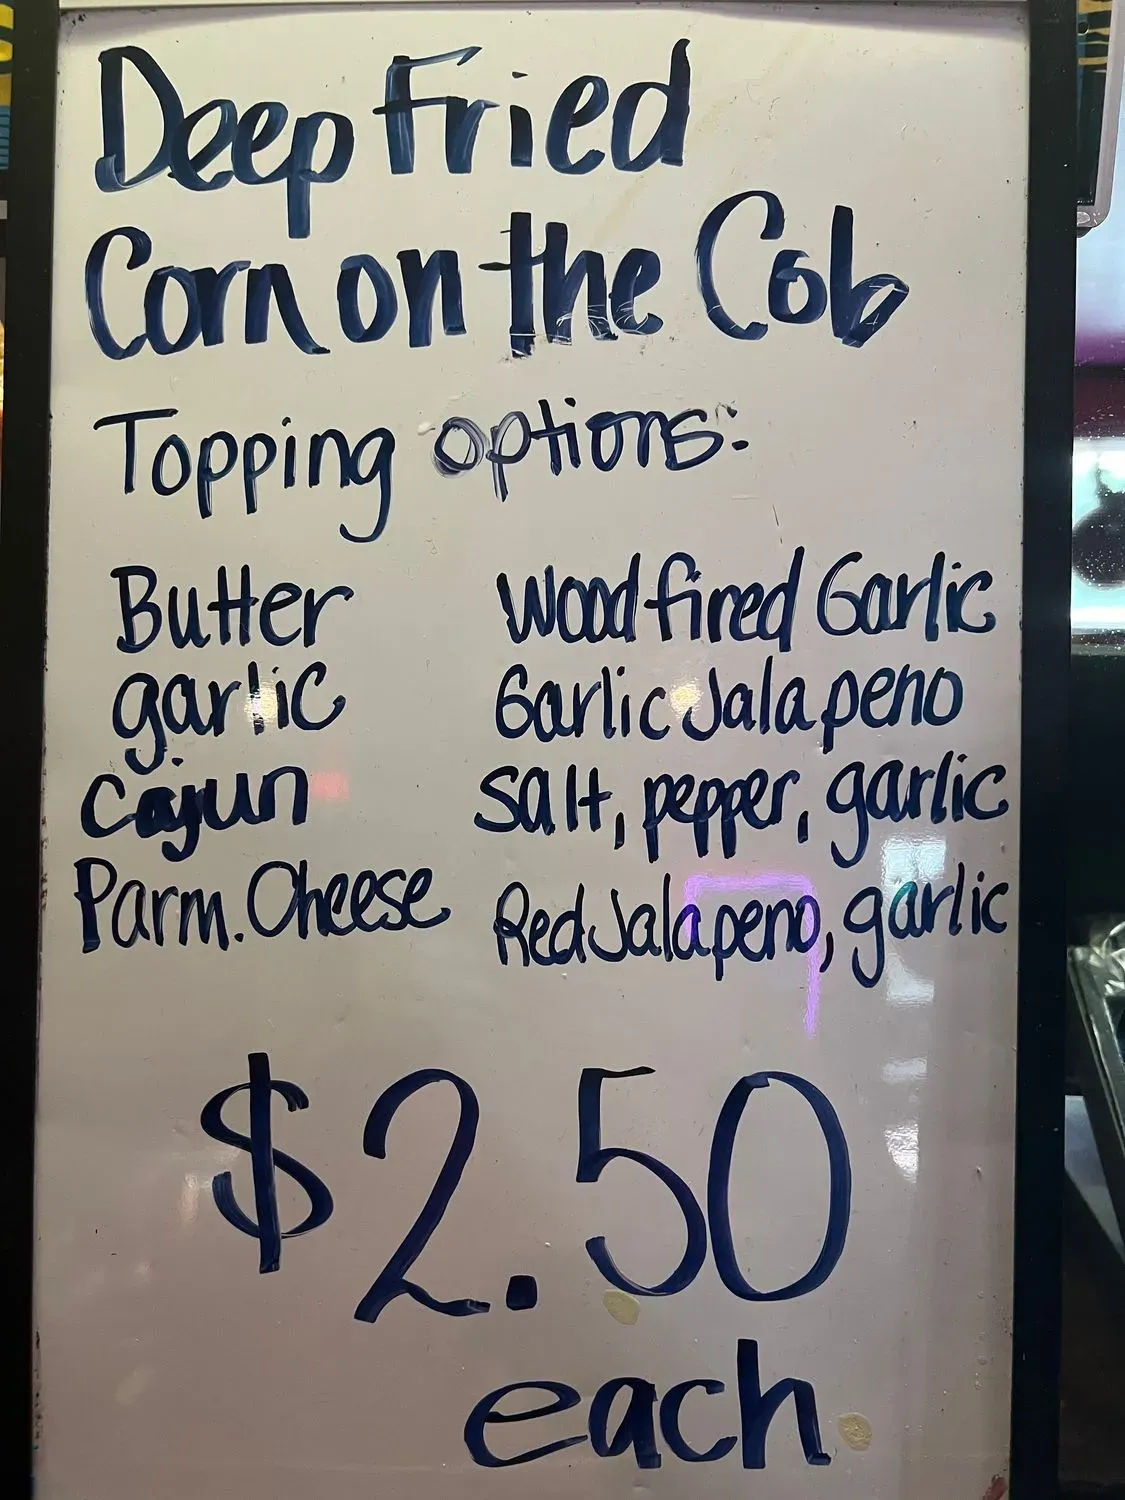 Deep Fried
Corn on the Cob
Topping options:
Butter
garlic
Cajun
Parm. Cheese
Wood fired Garlic
Garlic Jalapeno
Salt, pepper, garlic
Red Jalapeno, garlic
$2.50
each